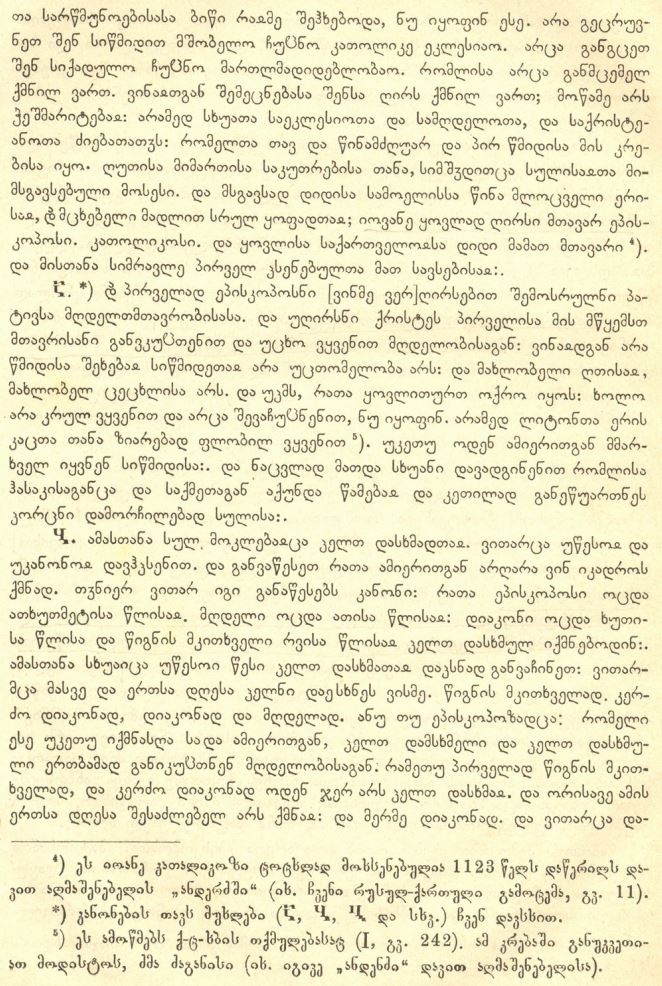 თა სარწმუნოებისასა ბიწი რაჲმე შეჰხებოდა, ნუ იყოფინ ესე. არა გეცრუვ-
ნეთ შენ სიწმიდით მშობელო ჩუენო კათოლიკე ეკლესიაო. არცა განგცეთ
შენ სიქადულო ჩუენო მართლმადიდებლობაო. რომლისა არცა განმცემელ
ქმნილ ვართ. ვინაჲთგან შემეცნებასა შენსა ღირს ქმნილ ვართ; მოწამე არს
ჭეშმარიტებაჲ: არამედ სხუათა საეკლესიოთა და სამღდელოთა, და საქრისტე-
ანოთა ძიებათათჳს: რომელთა თავ და წინამძღუარ და პირ წმიდისა მის კრე-
ბისა იყო. ღუთისა მიმართისა საკუთრებისა თანა, სიმშჳდითცა სულისაჲთა მი-
მსგავსებული მოსესი. და მსგავსად დიდისა სამოელისსა წინა მლოცველი ერი-
საჲ, და მცხებელი მადლით სრულ ყოფადთაჲ; იოვანე ყოვლად ღირსი მთავარ ეპის-
კოპოსი. კათოლიკოსი. და ყოვლისა საქართველოჲსა დიდი მამათ მთავარი ⁴).
და მისთანა სიმრავლე პირველ ჴსენებულთა მათ სავსებისაჲ:.
Ⴀ. *) და პირველად ეპისკოპოსნი [ვინმე ვერ]ღირსებით შემოსრულნი პა-
ტივსა მღდელთმთავრობისასა. და უღირსნი ქრისტეს პირველისა მის მწყემსთ
მთავრისანი განვკუეთენით და უცხო ვყვენით მღდელობისაგან: ვინაჲდგან არა
წმიდისა შეხებაჲ სიწმიდეთაჲ არა უცთომელობა არს: და მახლობელი ღთისაჲ,
მახლობელ ცეცხლისა არს. და უკმს, რათა ყოვლითურთ ოქრო იყოს: ხოლო
არა კრულ ვყვენით და არცა შევაჩუენენით, ნუ იყოფინ. არამედ ლიტონთა ერის
კაცთა თანა ზიარებად ფლობილ ვყვენით ⁵). უკეთუ ოდენ ამიერითგან მმარ-
ხველ იყვნენ სიწმიდისა:. და ნაცვლად მათდა სხუანი დავადგინენით რომლისა
ჰასაკისაგანცა და საქმეთაგან აქუნდა წამებაჲ და კეთილად განეწუართნეს
ჴორცნი დამორჩილებად სულისა:.
Ⴁ. ამასთანა სულ მოკლებაჲცა ჴელთ დასხმადთაჲ. ვითარცა უწესოჲ და
უკანონოჲ დავჰჴსენით. და განვაწესეთ რათა ამიერითგან არღარა ვინ იკადროს
ქმნად. თჳნიერ ვითარ იგი განაწესებს კანონი: რათა ეპისკოპოსი ოცდა
ათხუთმეტისა წლისაჲ. მღდელი ოცდა ათისა წლისაჲ: დიაკონი ოცდა ხუთი-
სა წლისა და წიგნის მკითხველი რვისა წლისაჲ ჴელთ დასხმულ იქმნებოდინ:.
ამასთანა სხუაიცა უწესოი წესი ჴელთ დასხმათაჲ დაჴსნად განვაჩინეთ: ვითარ-
მცა მასვე და ერთსა დღესა ჴელნი დაესხნეს ვისმე. წიგნის მკითხველად. კერ-
ძო დიაკონად, დიაკონად და მღდელად. ანუ თუ ეპისკოპოზადცა: რომელი
ესე უკეთუ იქმნასღა სადა ამიერითგან, ჴელთ დამსხმელი და ჴელთ დასხმუ-
ლი ერთბამად განიკუეთნენ მღდელობისაგან: რამეთუ პირველად წიგნის მკით-
ხველად, და კერძო დიაკონად ოდენ ჯერ არს ჴელთ დასხმაჲ. და ორისავე ამის
ერთსა დღესა შესაძლებელ არს ქმნაჲ: და მერმე დიაკონად. და ვითარცა და-
⁴) ეს იოანე კათალიკოზი ცოცხლად მოხსენებულია 1123 წელს დაწერილს და-
ვით აღმაშენებელის „ანდერძში“ (იხ. ჩვენი რუსულ-ქართული გამოცემა, გვ. 11).
*) კანონების თავს მუხლები (Ⴀ, Ⴁ, Ⴂ და სხვ.) ჩვენ დავსხით.
⁵) ეს ამოწმებს ქ-ც-ხბის თქმულებასაც (I, გვ. 242). ამ კრებაში განუკვეთი-
ათ მოდისტოს, ძმა ძაგანისი (იხ. იგივე „ანდენძი“ დავით აღმაშენებელისა).